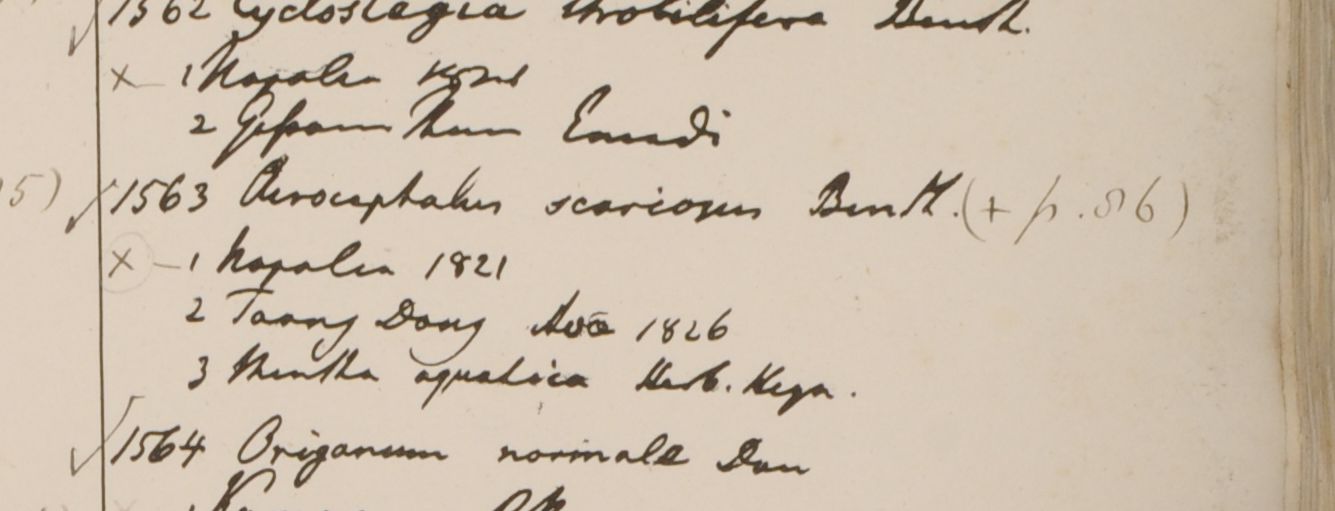 1562 Cyclostegia strobilifera Benth.
× – 1 Napalia
2 Gossam Than
5) 1563 Acrocephalus scariosus Benth. (+ p. 86)
× – 1 Napalia 1821
2 Taong Dong Ava 1826
3 Mentha aquatica Herb. Heyn.
1564 Origanum normale Don